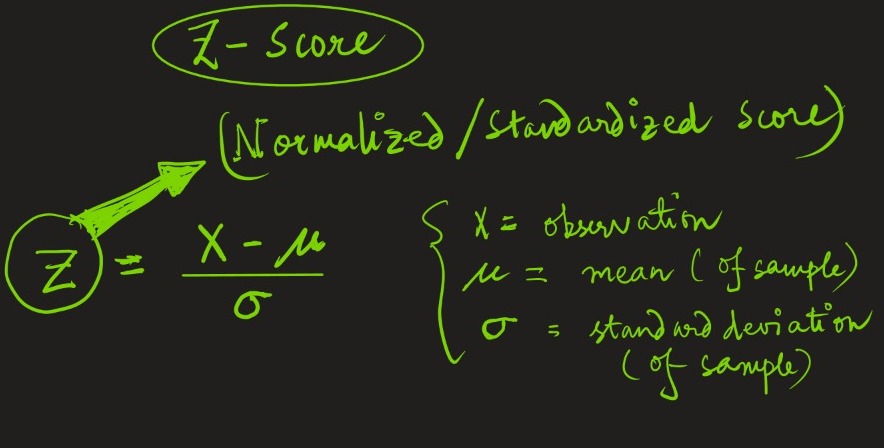 Z-Score
(Normalized/Standardized score)
Z = X - μ / σ
X = observation
μ = mean (of sample)
σ = standard deviation
(of sample)